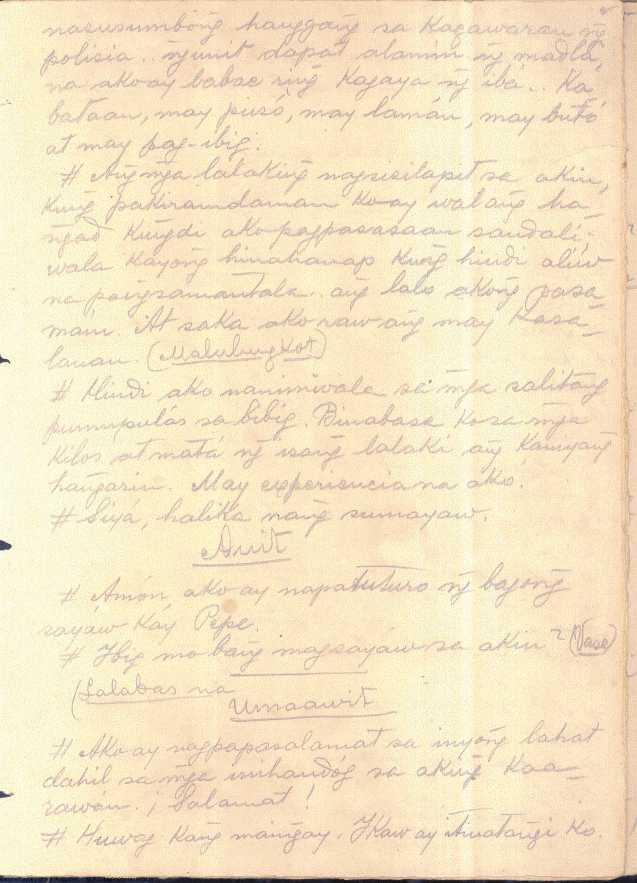 nasusumbóng hanggang sa Kagawaran ng̃
polisia.. ng̃unit dapat alamin ng̃ madlâ,
na ako ay babae ring Kagaya ng̃ iba.. Ka
bataan, may pusò, may lamán, may butó
at may pag-ibig.
# Ang mg̃a lalaking nagsisilapit sa akin,
Kung pakiramdaman Ko ay walang ha-
ng̃ad Kung̃di ako pagpasasaan sandalî;
wala Kayong hinahanap Kung hindi aliw
na pangsamantala.. ang lalo akong pasa
main. At saka ako raw ang may Kasa-
lanan. (Malubung̃kot)
# Hindi ako naniniwala sa mg̃a salitang
pumupulás sa bibig. Binabasa Ko sa mg̃a
Kilos at matá ng̃ isang lalaki ang Kaniyang
hang̃arin. May experiencia na ako.
# Siyá, halika nang sumayaw.
Awit
# Amón, ako ay napatuturo ng̃ bagong
sayáw Káy Pepe.
# Ibig mo bang magsayáw sa akin? (Vase)
(Lalabas na
Umaawit
# Ako ay nagpapasalamat sa inyóng lahat
dahil sa mg̃a inihandóg sa aking Kaa-
rawán. ¡ Salamat!
# Huwag Kang maing̃ay. IKaw ay itinatang̃i Ko.